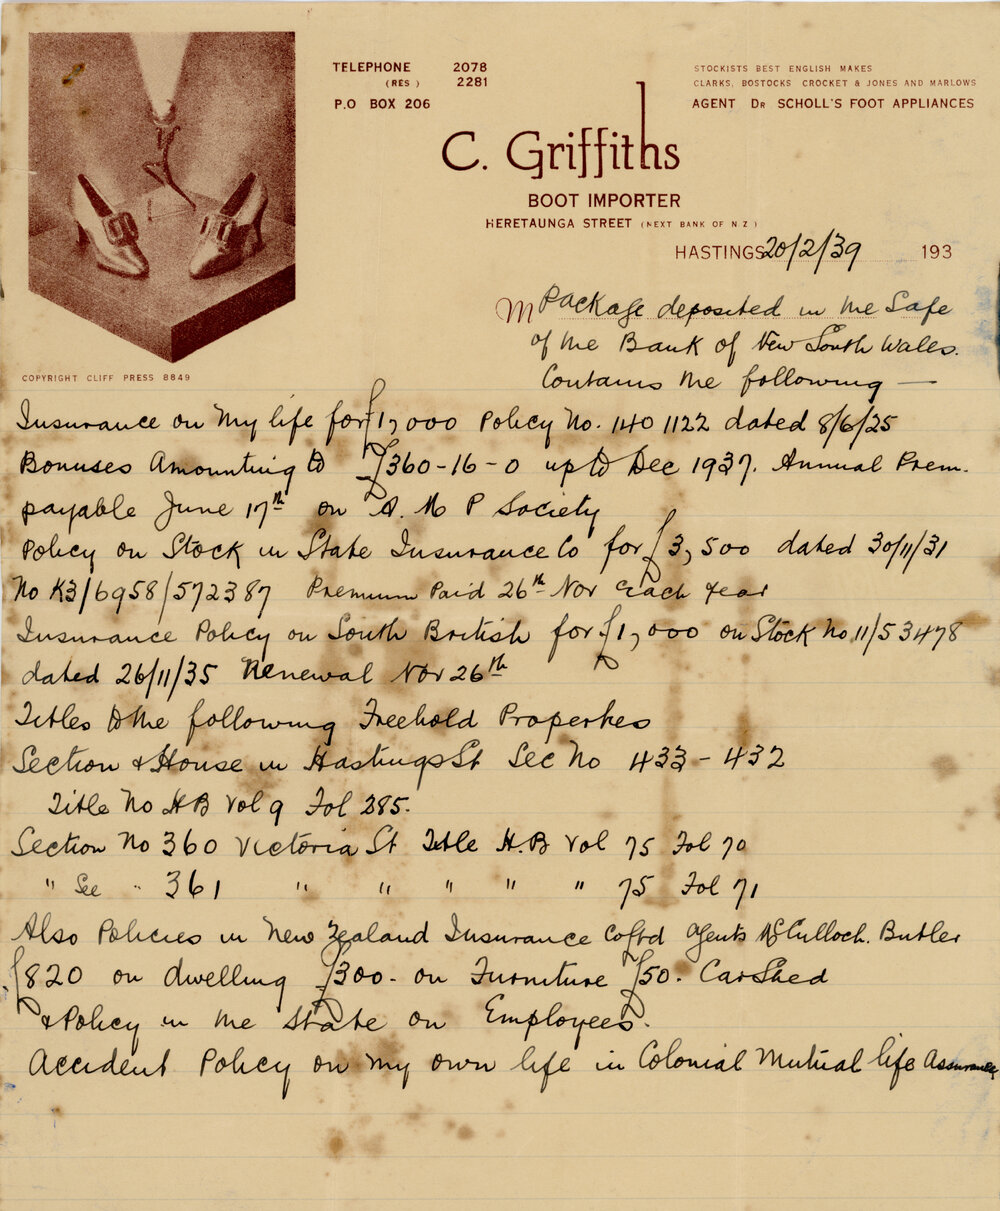 TELEPHONE 2078
(RES) 2281
P.O BOX 206
STOCKISTS BEST ENGLISH MAKES
CLARKS, BOSTOCKS CROCKET & JONES AND MARLOWS
AGENT DR SCHOLL'S FOOT APPLIANCES
C. Griffiths
BOOT IMPORTER
HERETAUNGA STREET (NEXT BANK OF N Z)
HASTINGS 20/2/39 193
COPYRIGHT CLIFF PRESS 8849
M Package deposited in the Safe
of the Bank of New South Wales.
Contains the following —
Insurance on my life for £1,000 Policy No. 1401122 dated 8/6/25
Bonuses Amounting to £360-16-0 up to Dec 1937. Annual Prem.
payable June 17th on A. M P Society
Policy on Stock in State Insurance Co for £3,500 dated 30/11/31
No K3/6958/572387 Premium Paid 26th Nov Each Year
Insurance Policy on South British for £1,000 on Stock No 11/53478
dated 26/11/35 Renewal Nov 26th
Titles to the following Freehold Properties
Section & House in Hastings St Sec No 433 - 432
Title No HB Vol 9 Fol 285.
Section No 360 Victoria St Title H.B Vol 75 Fol 70
" Sec " 361 " " " " " 75 Fol 71
Also Policies in New Zealand Insurance Co Ltd agents McCulloch. Butler
£820 on dwelling £300 - on Furniture £50. Car Shed
& Policy in the State on Employees.
Accident Policy on my own life in Colonial Mutual life Assurance